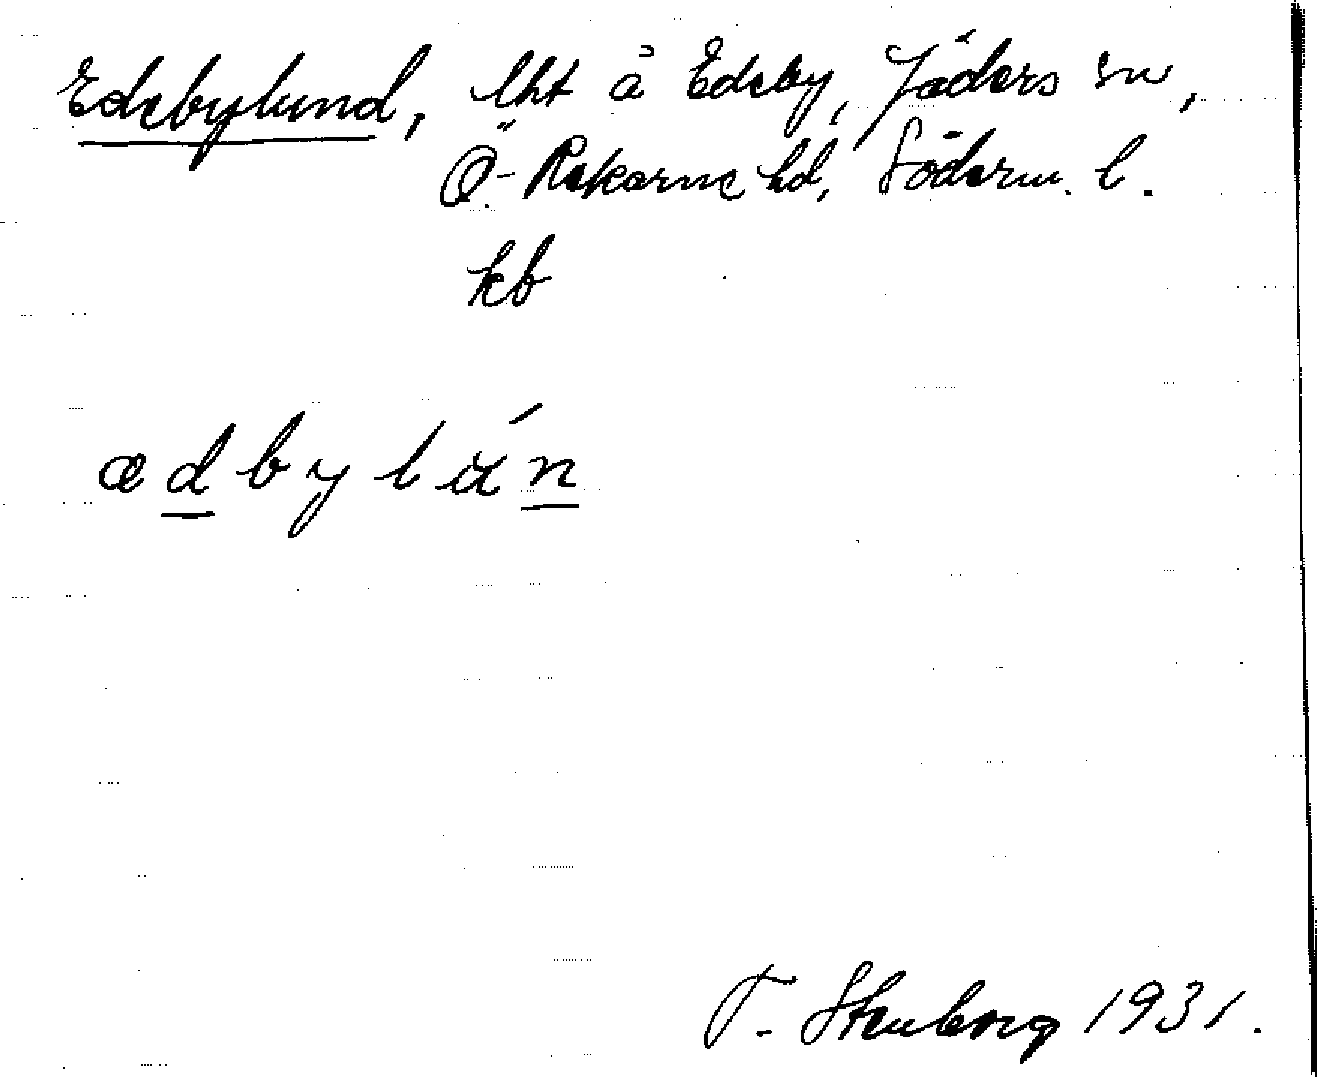 Edebylund, lht å Edeby, Jäders sn,
Ö. Rekarne hd, Söderm. l.
kb
T. Stenborg 1931.